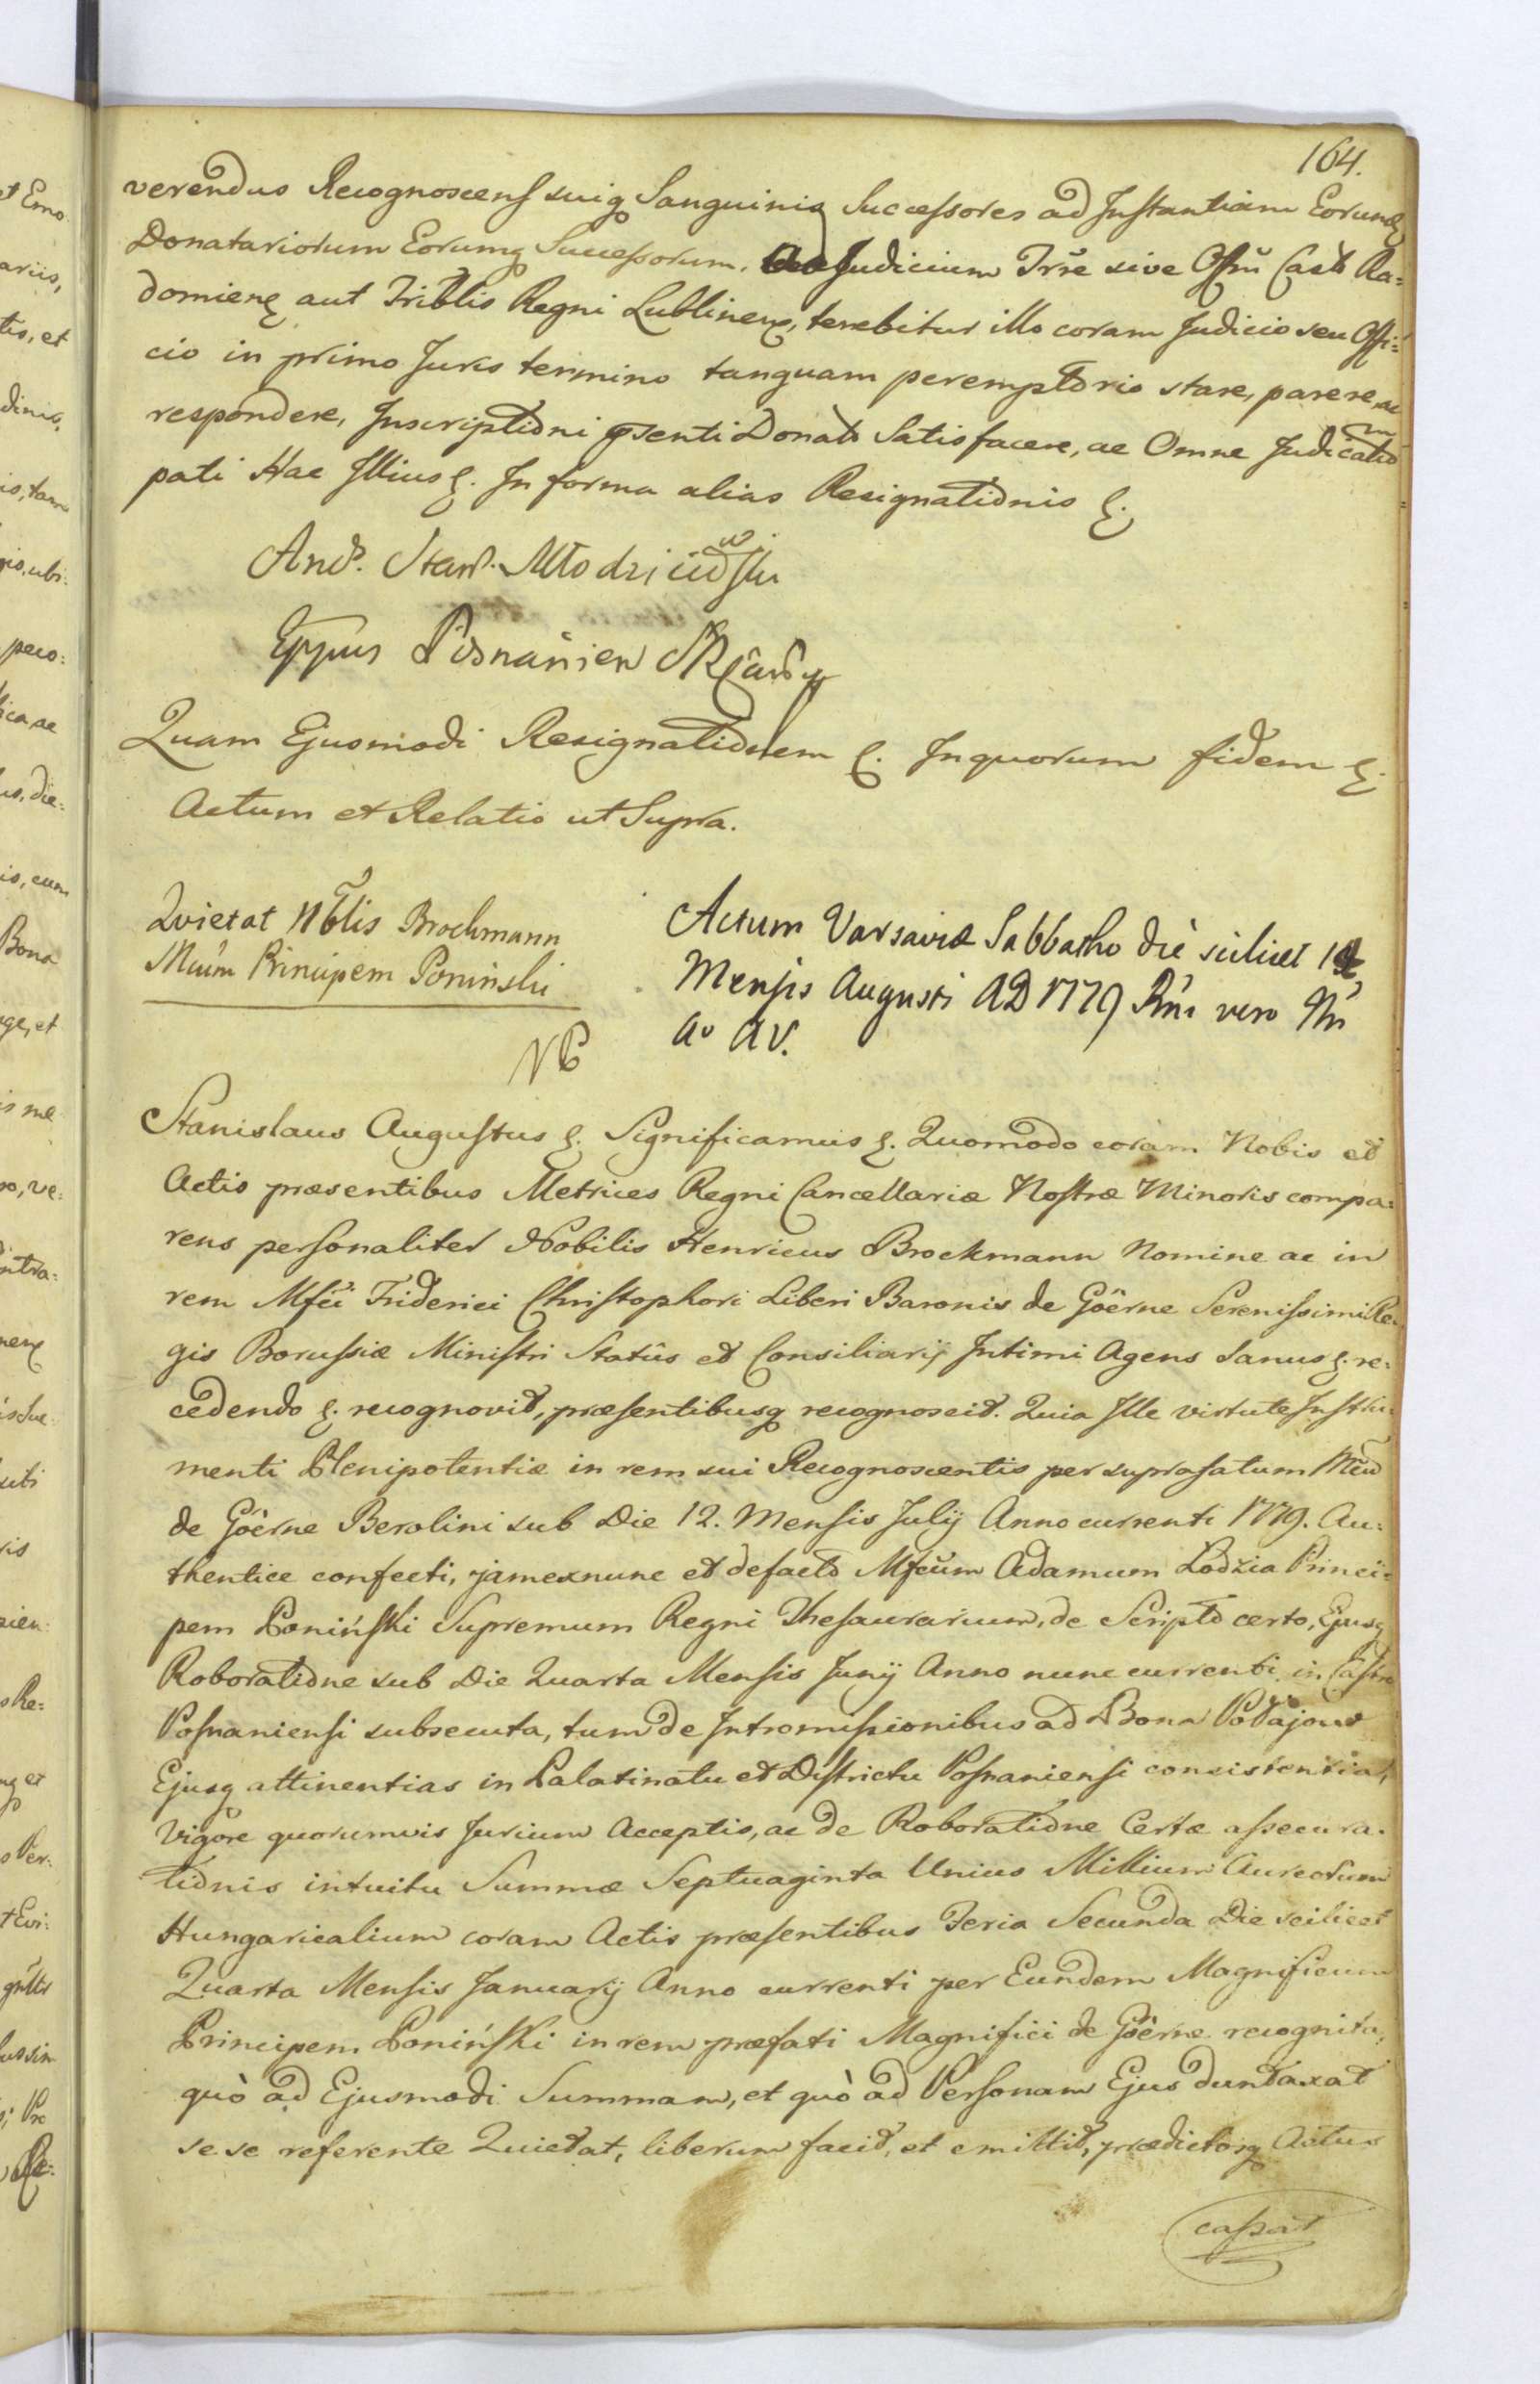 164.
verendus Recognoscens suiq Sanguinis Successores ad Instantiam Eorundę
Donatariorum Eorumq Successorum, Judicium Trře sive Offiů Castr Ra=
domienę aut Tribtlis Regni Lublinenę, tenebitur illo coram Judicio seu Offi=
cio in primo Juris termino tanquam peremptorio stare, parere, ac
respondere, Inscriptioni pſenti Donatō Satisfacere, ac Omne Judicatum
pati Hac Illius ę. In forma alias Resignationis ę.
And. Stan. Młodziiowski
Eppus Posnanien
Quam Ejusmodi Resignationem ę. In quorum fidem ę.
Actum et Relatio ut Supra.
Qvietat Nbtlis Brockmann
Mcum Principem Poninski
Actum Varsaviæ Sabbatho die scilicet
Mensis Augusti AD 1779 Rni vero Nri
Ao AV.
Stanislaus Augustus ę. Significamus ę. Quomodo coram Nobis et
Actis præsentibus Metrices Regni Cancellariæ Nostræ Minoris compa=
rens personaliter Nobilis Henricus Brockmann Nomine ac in
rem Mfci Friderici Christophori Liberi Baronis de Göerne Serenissimi Re=
gis Borussiæ Ministri Statûs et Consiliarij Intimi Agens Sanus ę. re=
cedendo ę. recognovit, præsentibusq recognoscit. Quia Ille virtute Instru=
menti Plenipotentiæ in rem sui Recognoscentis per suprafatum Mcum
de Göerne Berolini sub Die 12. Mensis Julij Anno currenti 1779. Au=
thentice confecti, jamexnunc et defacto Mfcum Adamum Lodzia Princi=
pem Poniński Supremum Regni Thesaurarium, de Scripto certo, Ejusq
Roboratione sub Die Quarta Mensis Junij Anno nunc currenti in Castro
Posnaniensi subsecuta, tum de Intromissionibus ad Bona Połajowo
Ejusq attinentias in Palatinatu et Districtu Posnaniensi consistentia,
Vigore quorumvis Jurium Acceptis, ac de Roboratione Certæ assecura=
tionis intuitu Summæ Septuaginta Unius Millium Aureorum
Hungaricalium coram Actis præsentibus Feria Secunda Die scilicet
Quarta Mensis Januarij Anno currenti per Eundem Magnificum
Principem Poniński in rem præfati Magnifici de Göerne recognita,
quò ad Ejusmodi Summam, et quò ad Personam Ejus duntaxat
sese referente Quietat, liberum facit, et emittit, prædictosq Actus
cassat